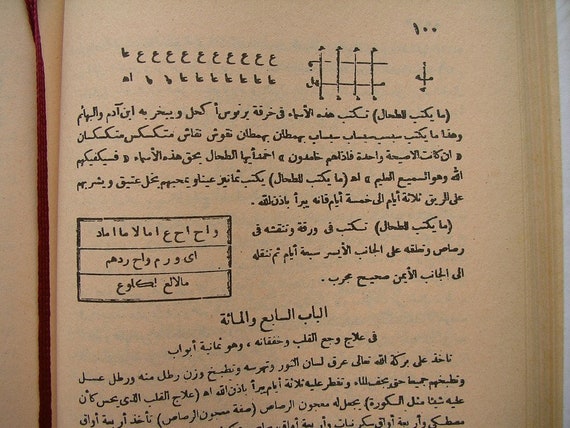 ١٠٠
ع ع ع ع ع ع ع ع ع عا
(ما يكتب للطحال) تكتب هذه الأسماء فى خرقة برنوس أكحل ويبخر به ابن آدم والبهائم
وهذا ما يكتب سبسب سباب سباب بهمطان بهمطان نقوش نقاش متكسكس متكسكسان
« ان كانت الاصيحة واحدة فاذاهم خامدون » اخمد أيها الطحال بحق هذه الأسماء « فسيكفيكهم
الله وهو السميع العليم » اه (ما يكتب للطحال) يكتب ثمانيز عينا ويمحيهم بخل عتيق ويشربهم
على الريق ثلاثة أيام الى خمسة أيام فانه يبرأ باذن الله .
(ما يكتب للطحال) تكتب فى ورقة وتنقشه فى
رصاص وتطقه على الجانب الأيسر سبعة أيام ثم تنقله
الى الجانب الأيمن صحيح مجرب .
و اح اح ع ا م ا لا م ا ا ماد
اى و ر م واح ردهم
مالالع
الباب السابع والمائة
فى علاج وجع القلب وخفقانه ، وهو ثمانية أبواب
تأخذ على بركة الله تعالى عرق لسان الثور وتهرسه وتطبخ وزن رطل منه ورطل عسل
وتطبخهم جميعا حتى يجف الماء وتفطر عليه ثلاثة أيام يبرأ باذن الله اه (علاج القلب الذى يحس كأن
عليه شيئا مثل السكورة) يجعل له معجون الرصاص (صفة معجون الرصاص) تأخذ أربعة أواق